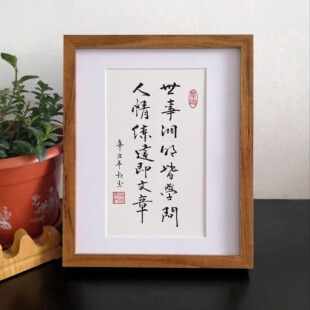 世事洞明皆學問
人情練達即文章
辛丑年